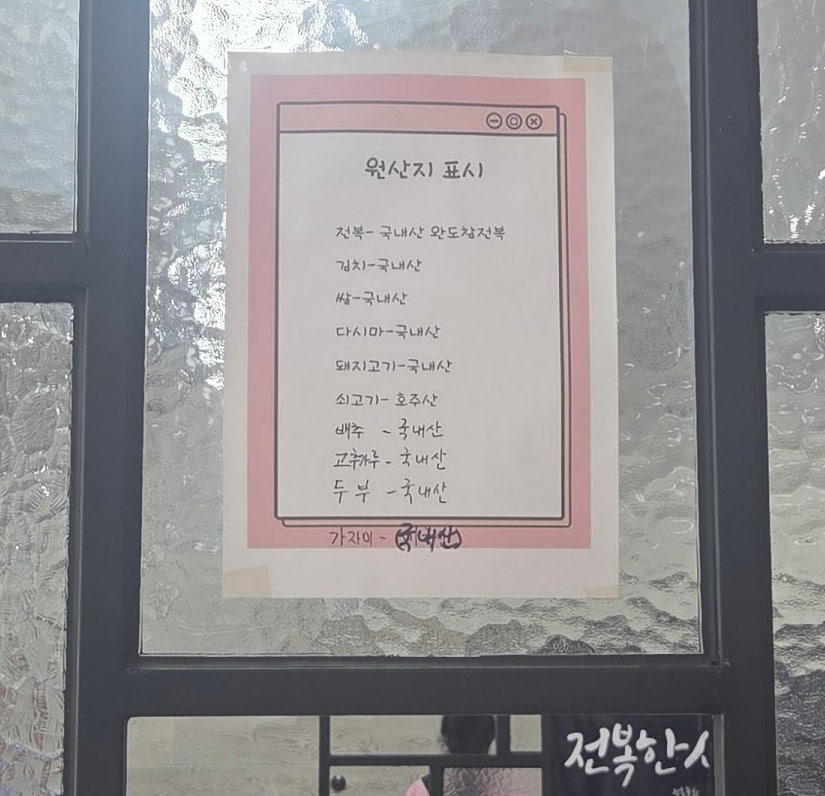 원산지 표시
전복- 국내산 완도참전복
김치-국내산
쌀-국내산
다시마-국내산
돼지고기-국내산
쇠고기- 호주산
배추 - 국내산
고추가루 - 국내산
두부 - 국내산
가자미 - (국내산)
전복한